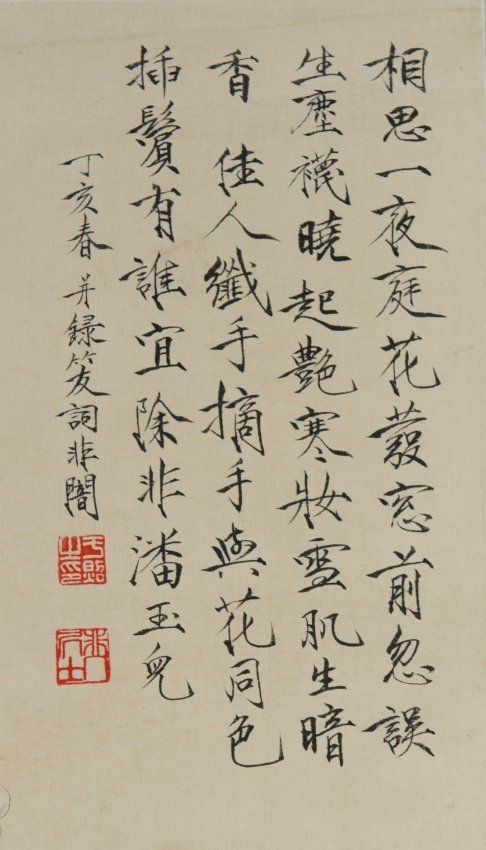 相思一夜庭花發窓前忽誤
生塵襪曉起艷寒妝雪肌生暗
香　佳人纖手摘手與花同色
插鬢有誰宜除非潘玉兒
丁亥春并録笅詞非闇